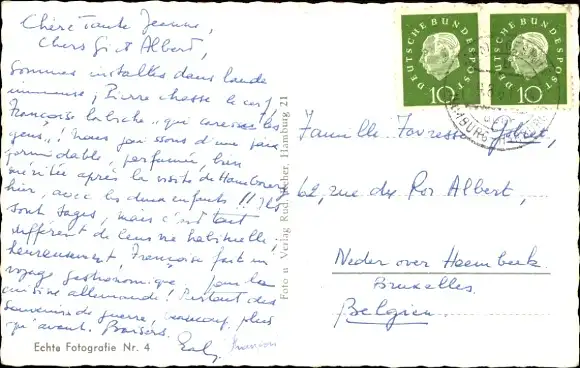 Chère Tante Jeanne,
Chers Gi et Albert,
Sommes installés dans lande
immense ; Pierre chasse le cerf,
Françoise la biche "qui les
yeux" ! Nous jouissons d'une paix
formidable, parfumée, bien
méritée après la visite de Hambourg
hier, avec les deux enfants !! Ils
sont sages, mais c'est tout
différent de leur vie habituelle ;
heureusement, Françoise fait un
voyage gastronomique pour la
cuisine allemande ! Partout des
souvenirs de guerre, beaucoup plus
qu'avant. Baisers.
Echte Fotografie Nr. 4
Foto u Verlag Rud. Hamburg 21
DEUTSCHE BUNDESPOST
10
DEUTSCHE BUNDESPOST
10
HAMBURG
Famille
62, rue du Roi Albert,
Neder over Heembeek
Bruxelles.
Belgien.